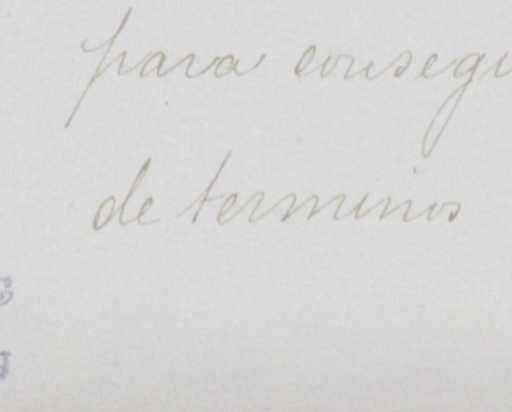 para consegu
de terminos